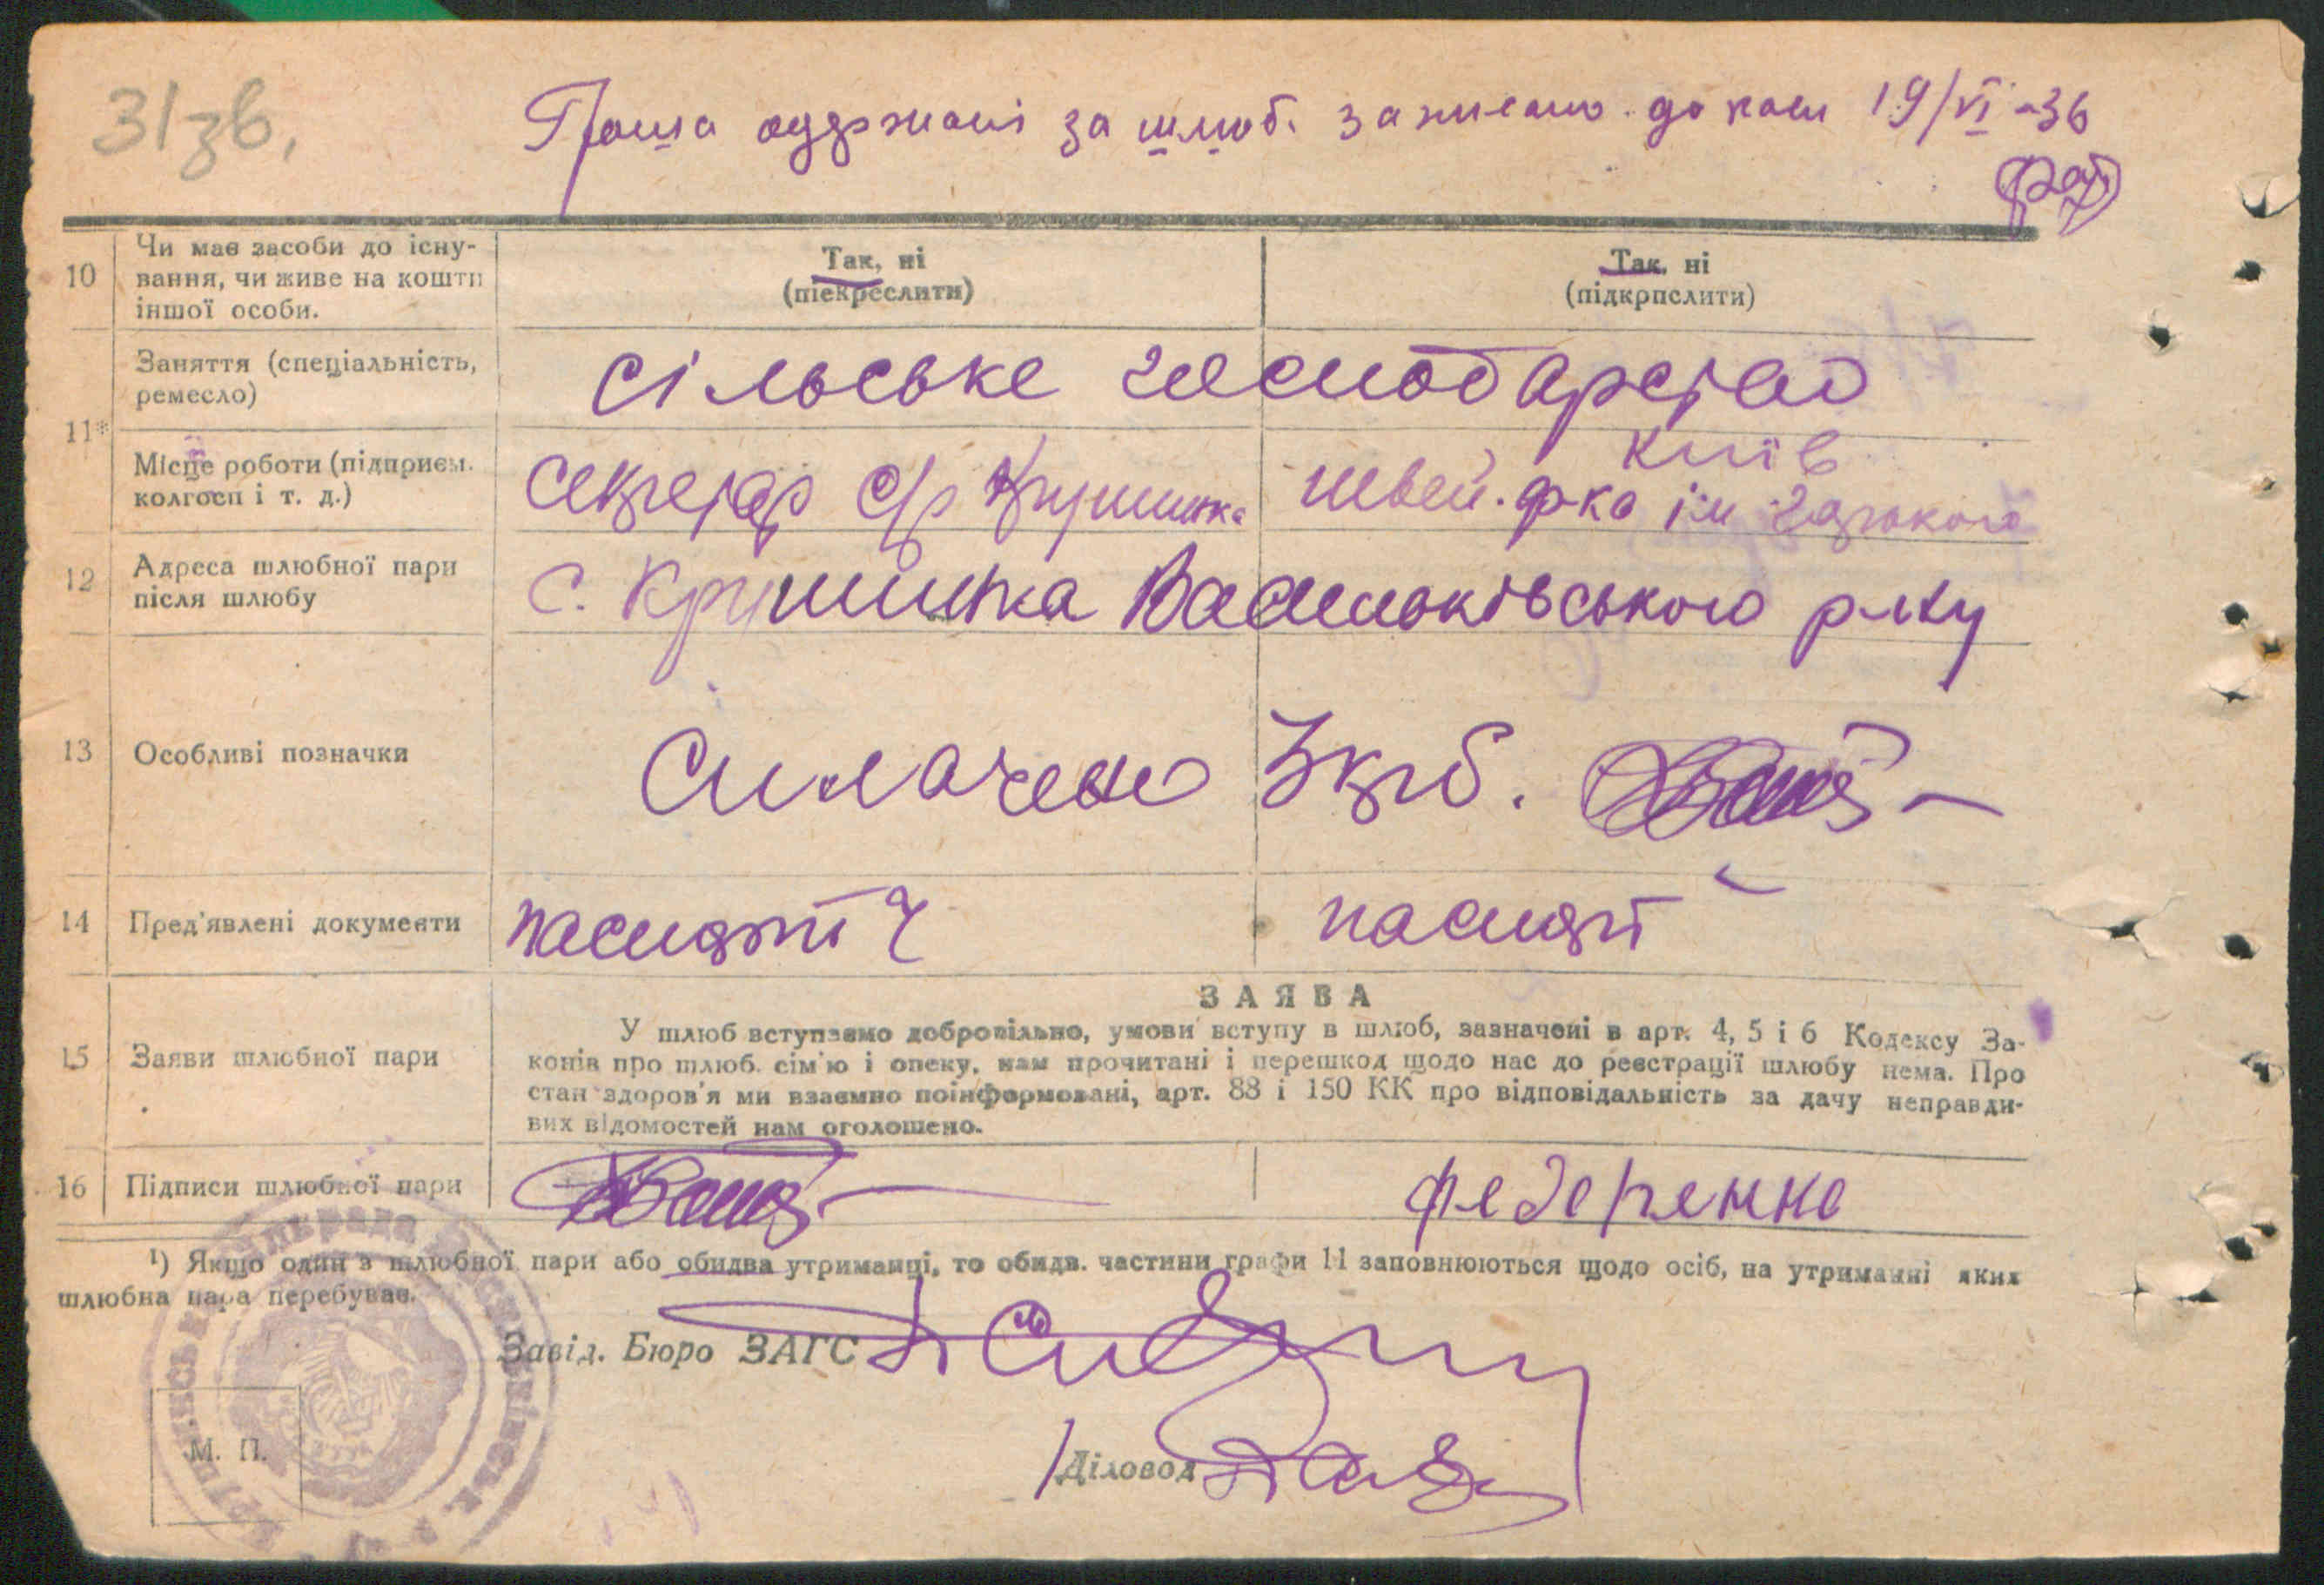 31зв.
Гроши одержані за шлюб. записано до каси 19/VI -36
10
Чи має засоби до існу-
вання, чи живе на кошти
іншої особи.
Так, ні
(піекреслити)
Так, ні
(підкрпслити)
Заняття (спеціальність,
ремесло)
сільське господарство
11*
Місце роботи (підприєм.
колгосп і т. д.)
секретар с/р Крушинка
Київ
швей. ф-ка ім Горького
12
Адреса шлюбної пари
після шлюбу
с. Крушинка Васильківського р-ну
13
Особливі позначки
Сплачено 3крб.
14
Пред'явлені документи
паспорт
паспорт
ЗАЯВА
15
Заяви шлюбної пари
У шлюб вступаємо добровільно, умови вступу в шлюб, зазначені в арт. 4, 5 і 6 Кодексу За-
конів про шлюб. сім'ю і опеку, нам прочитані і перешкод щодо нас до реєстрації шлюбу нема. Про
стан здоров'я ми взаємно поінформовані, арт. 88 і 150 КК про відповідальність за дачу неправди-
вих відомостей нам оголошено.
16
Підписи шлюбної пари
Федеренко
¹) Якщо один з шлюбної пари або обидва утриманці, то обидв. частини графи 11 заповнюються щодо осіб, на утриманні яких
шлюбна пара перебуває.
Завід. Бюро ЗАГС
М. П.
Діловод